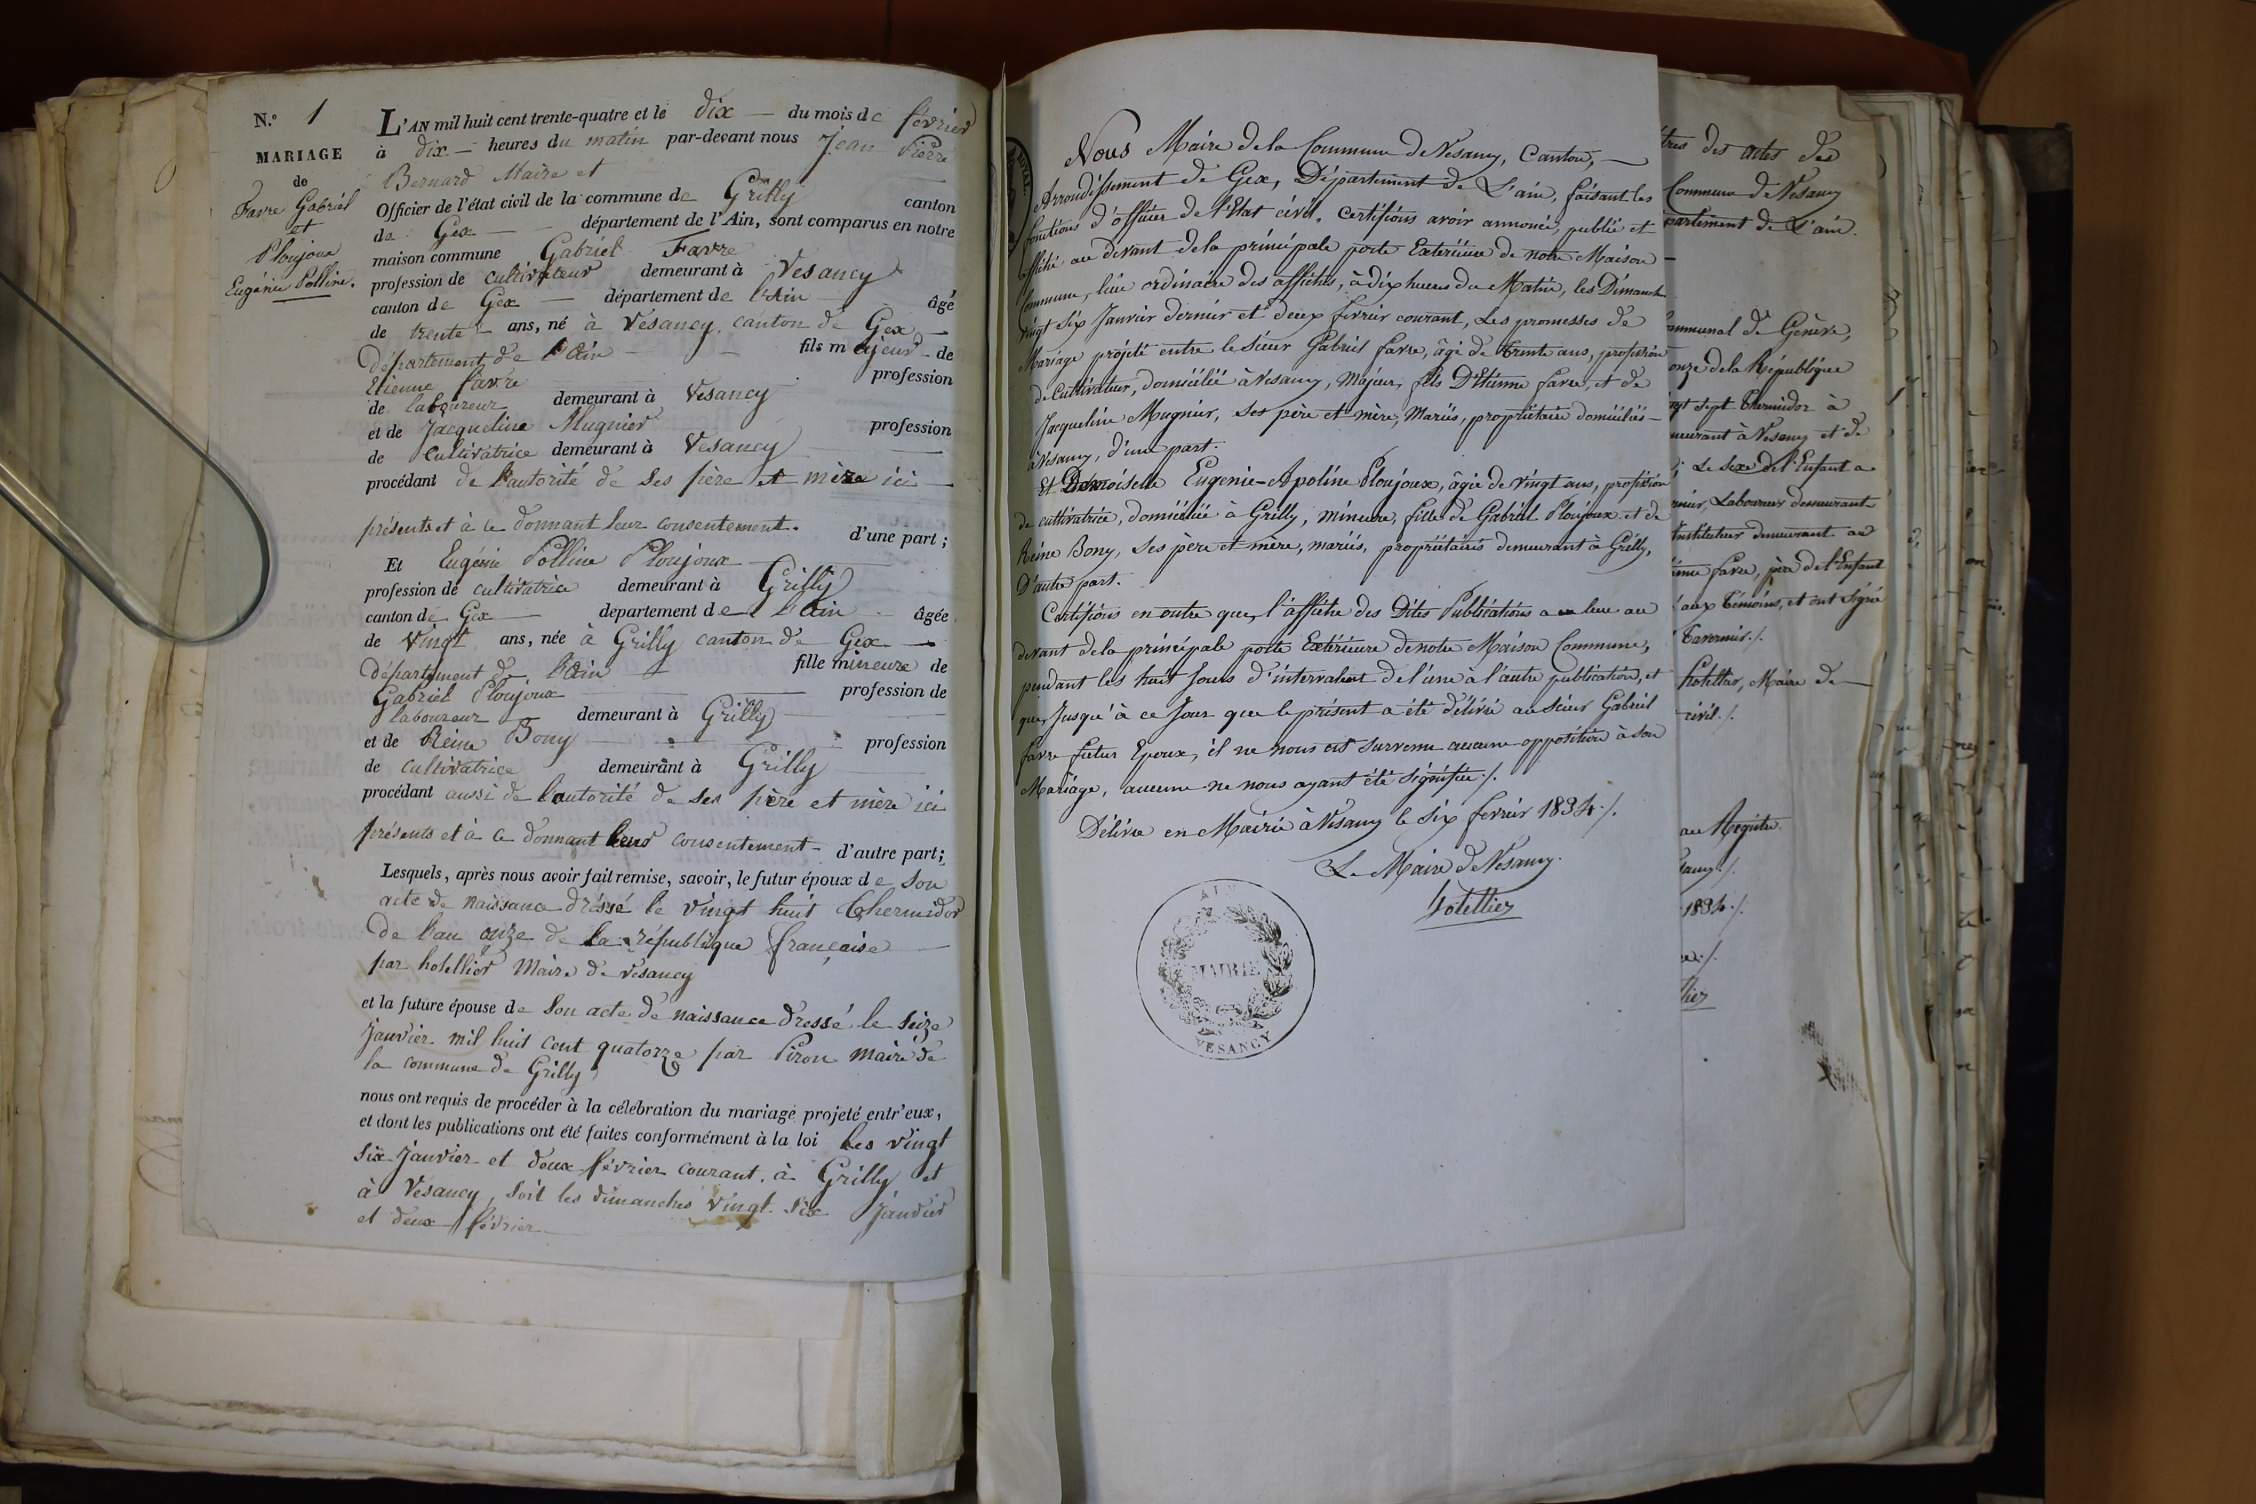 N.o 1
MARIAGE
de
Favre Gabriel
et
Ploujoux
Eugénie Polline.
L'AN mil huit cent trente-quatre et le dix — du mois de février
à dix — heures du matin par-devant nous Jean Pierre
Bernard Maire et
Officier de l'état civil de la commune de Grilly canton
de Gex — département de l'Ain, sont comparus en notre
maison commune Gabriel Favre
profession de cultivateur demeurant à Vesancy
canton de Gex — département de l'Ain âgé
de trente — ans, né à Vesancy canton de Gex —
département de l'Ain — fils majeur de
Etienne favre profession
de laboureur demeurant à Vesancy
et de Jacqueline Mugnier profession
de cultivatrice demeurant à Vesancy
procédant de l'autorité de ses père et mère ici —
présents et à ce donnant leur consentement. d'une part ;
Et Eugénie Polline Ploujoux
profession de cultivatrice demeurant à Grilly
canton de Gex — departement de l'Ain âgée
de vingt ans, née à Grilly canton de Gex —
département de l'Ain — fille mineure de
Gabriel Ploujoux — profession de
laboureur — demeurant à Grilly
et de Reine Bony — profession
de cultivatrice demeurant à Grilly
procédant aussi de l'autorité de ses père et mère ici
présents et à ce donnant leur consentement - d'autre part;
Lesquels, après nous avoir fait remise, savoir, le futur époux de son
acte de naissance dressé le vingt huit Thermidor
de l'an onze de la république française —
par hotellier Maire de vesancy
et la future épouse de son acte de naissance dressé le seize
janvier mil huit cent quatorze par Piron maire de
la commune de Grilly
nous ont requis de procéder à la célébration du mariage projeté entr'eux,
et dont les publications ont été faites conformément à la loi les vingt
six janvier et deux février courant, à Grilly et
à Vesancy, soit les dimanches vingt six janvier
et deux février
Nous Maire de la Commune de Vesancy, Canton, —
Arrondissement de Gex, Département de L'ain, faisant les
fonctions d'officier de l'Etat civil. Certifions avoir annoncé, publié et
affiché au devant de la principale porte Extérieure de notre Maison —
Commune, lieu ordinaire des affiches, à dix heures du Matin, les Dimanche
vingt Six Janvier dernier et deux fevrier courant, Les promesses de
Mariage projeté entre le Sieur Gabriel favre, âgé de trente ans, profession
de Cultivateur, domicilié à Vesancy, Majeur, fils D'Etienne favre, et de
Jacqueline Mugnier, ses père et mère, Mariés, propriétaires domiciliés —
à Vesancy, d'une part.
Et Demoiselle Eugenie-Apoline Ploujoux, âgée de vingt ans, profession
de cultivatrice, domiciliée à Grilly, mineure, fille de Gabriel Ploujoux et de
Reine Bony, ses père et mère, mariés, propriétaires demeurant à Grilly,
D'autre part.
Certifions en outre que l'affiche des Dites Publications a eu lieu au
devant de la principale porte Extérieure de notre Maison Commune,
pendant les huit Jours d'intervalent de l'une à l'autre publication, et
que, Jusqu'à ce Jour que le présent a été délivré au Sieur Gabriel
favre futur Epoux, il ne nous est survenu aucune opposition à son
Mariage, aucune ne nous ayant été signifiée ./.
Délivré en Mairie à Vesancy le Six fevrier 1834 ./.
Le Maire de Vesancy.
hotellier
AIN
MAIRIE
VESANCY
des actes des
Commune de Vesancy
partement de L'ain.
Communal de Genève,
onze de la République
vingt sept Thermidor à
meurant à Vesancy et de
Le sexe de l'Enfant a
Laboureur demeurant
Instituteur demeurant au
favre, père de l'Enfant
aux témoins, et ont signé
Tavernier ./.
hotellier, Maire de —
civil ./.
au Registre.
1834 ./.